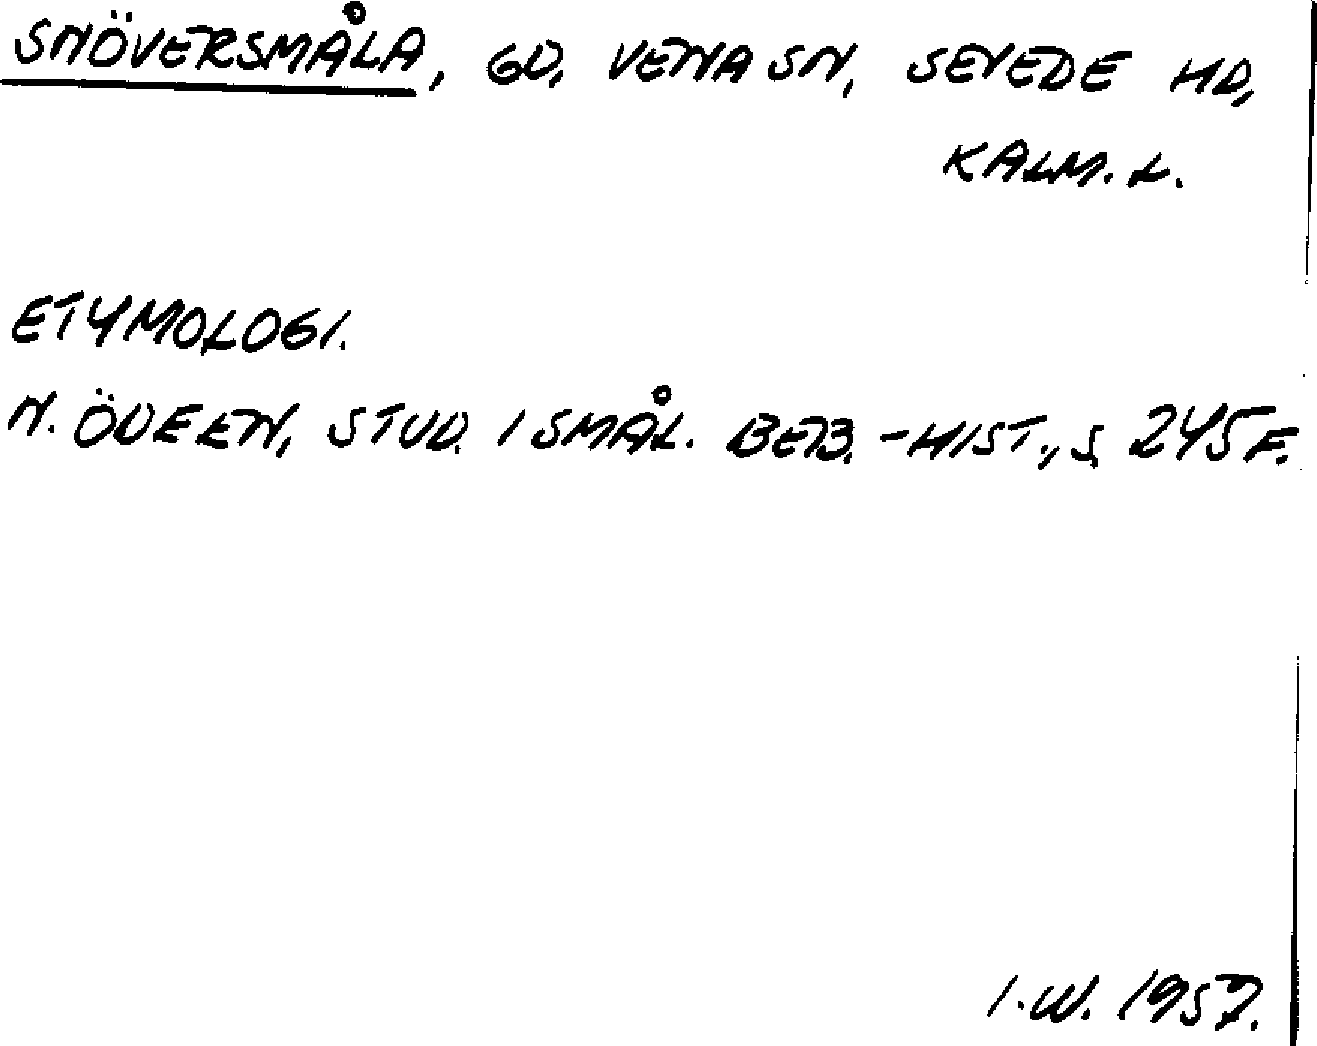 SNÖVERSMÅLA, GD, VENA SN, SEVEDE HD,
KALM. L.
ETYMOLOGI.
N. ÖDEEN, STUD. I SMÅL. BEB. -HIST., S. 245 F.
I.W. 1957.